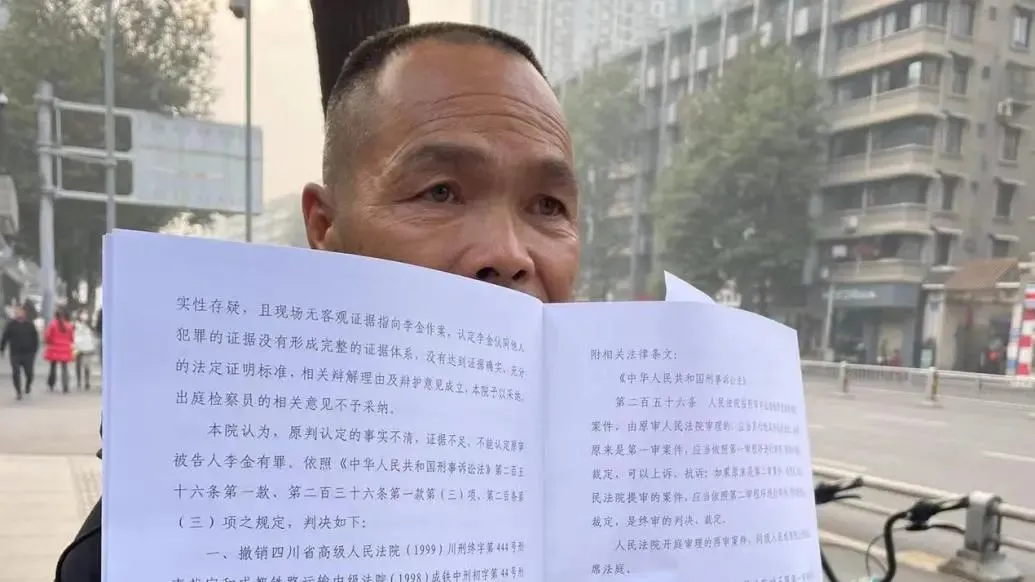 实性存疑，且现场无客观证据指向李金作案，认定李金认同他人
犯罪的证据没有形成完整的证据体系，没有达到证据确实、充分
的法定证明标准，相关辩解理由及辩护意见成立，本院予以采纳。
出庭检察员的相关意见不予采纳。
本院认为，原判认定的事实不清，证据不足，不能认定原审
被告人李金有罪。依照《中华人民共和国刑事诉讼法》第二百五
十六条第一款、第二百三十六条第一款第（三）项、第二百条第
（三）项之规定，判决如下：
一、撤销四川省高级人民法院（1999）川刑终字第444号刑
事裁定和成都铁路运输中级法院（1998）成铁中刑初字第44号
附相关法律条文：
《中华人民共和国刑事诉讼法》
第二百五十六条 人民法院按照审判监督程序
案件，由原审人民法院审理的，应当另行
原来是第一审案件，应当依照第一审程序
裁定，可以上诉、抗诉；如果原来是第二审案件
民法院提审的案件，应当依照第二审程序
裁定，是终审的判决、裁定。
人民法院开庭审理的再审案件，同级人民
席法庭。